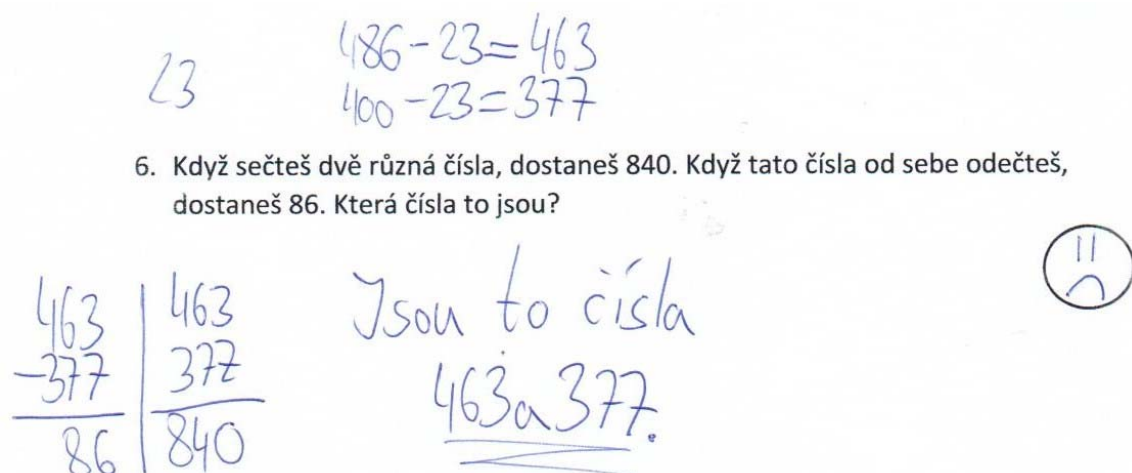 486-23=463
23
400-23=377
6. Když sečteš dvě různá čísla, dostaneš 840. Když tato čísla od sebe odečteš,
dostaneš 86. Která čísla to jsou?
463
-377
86
463
377
840
Jsou to čísla
463 a 377.